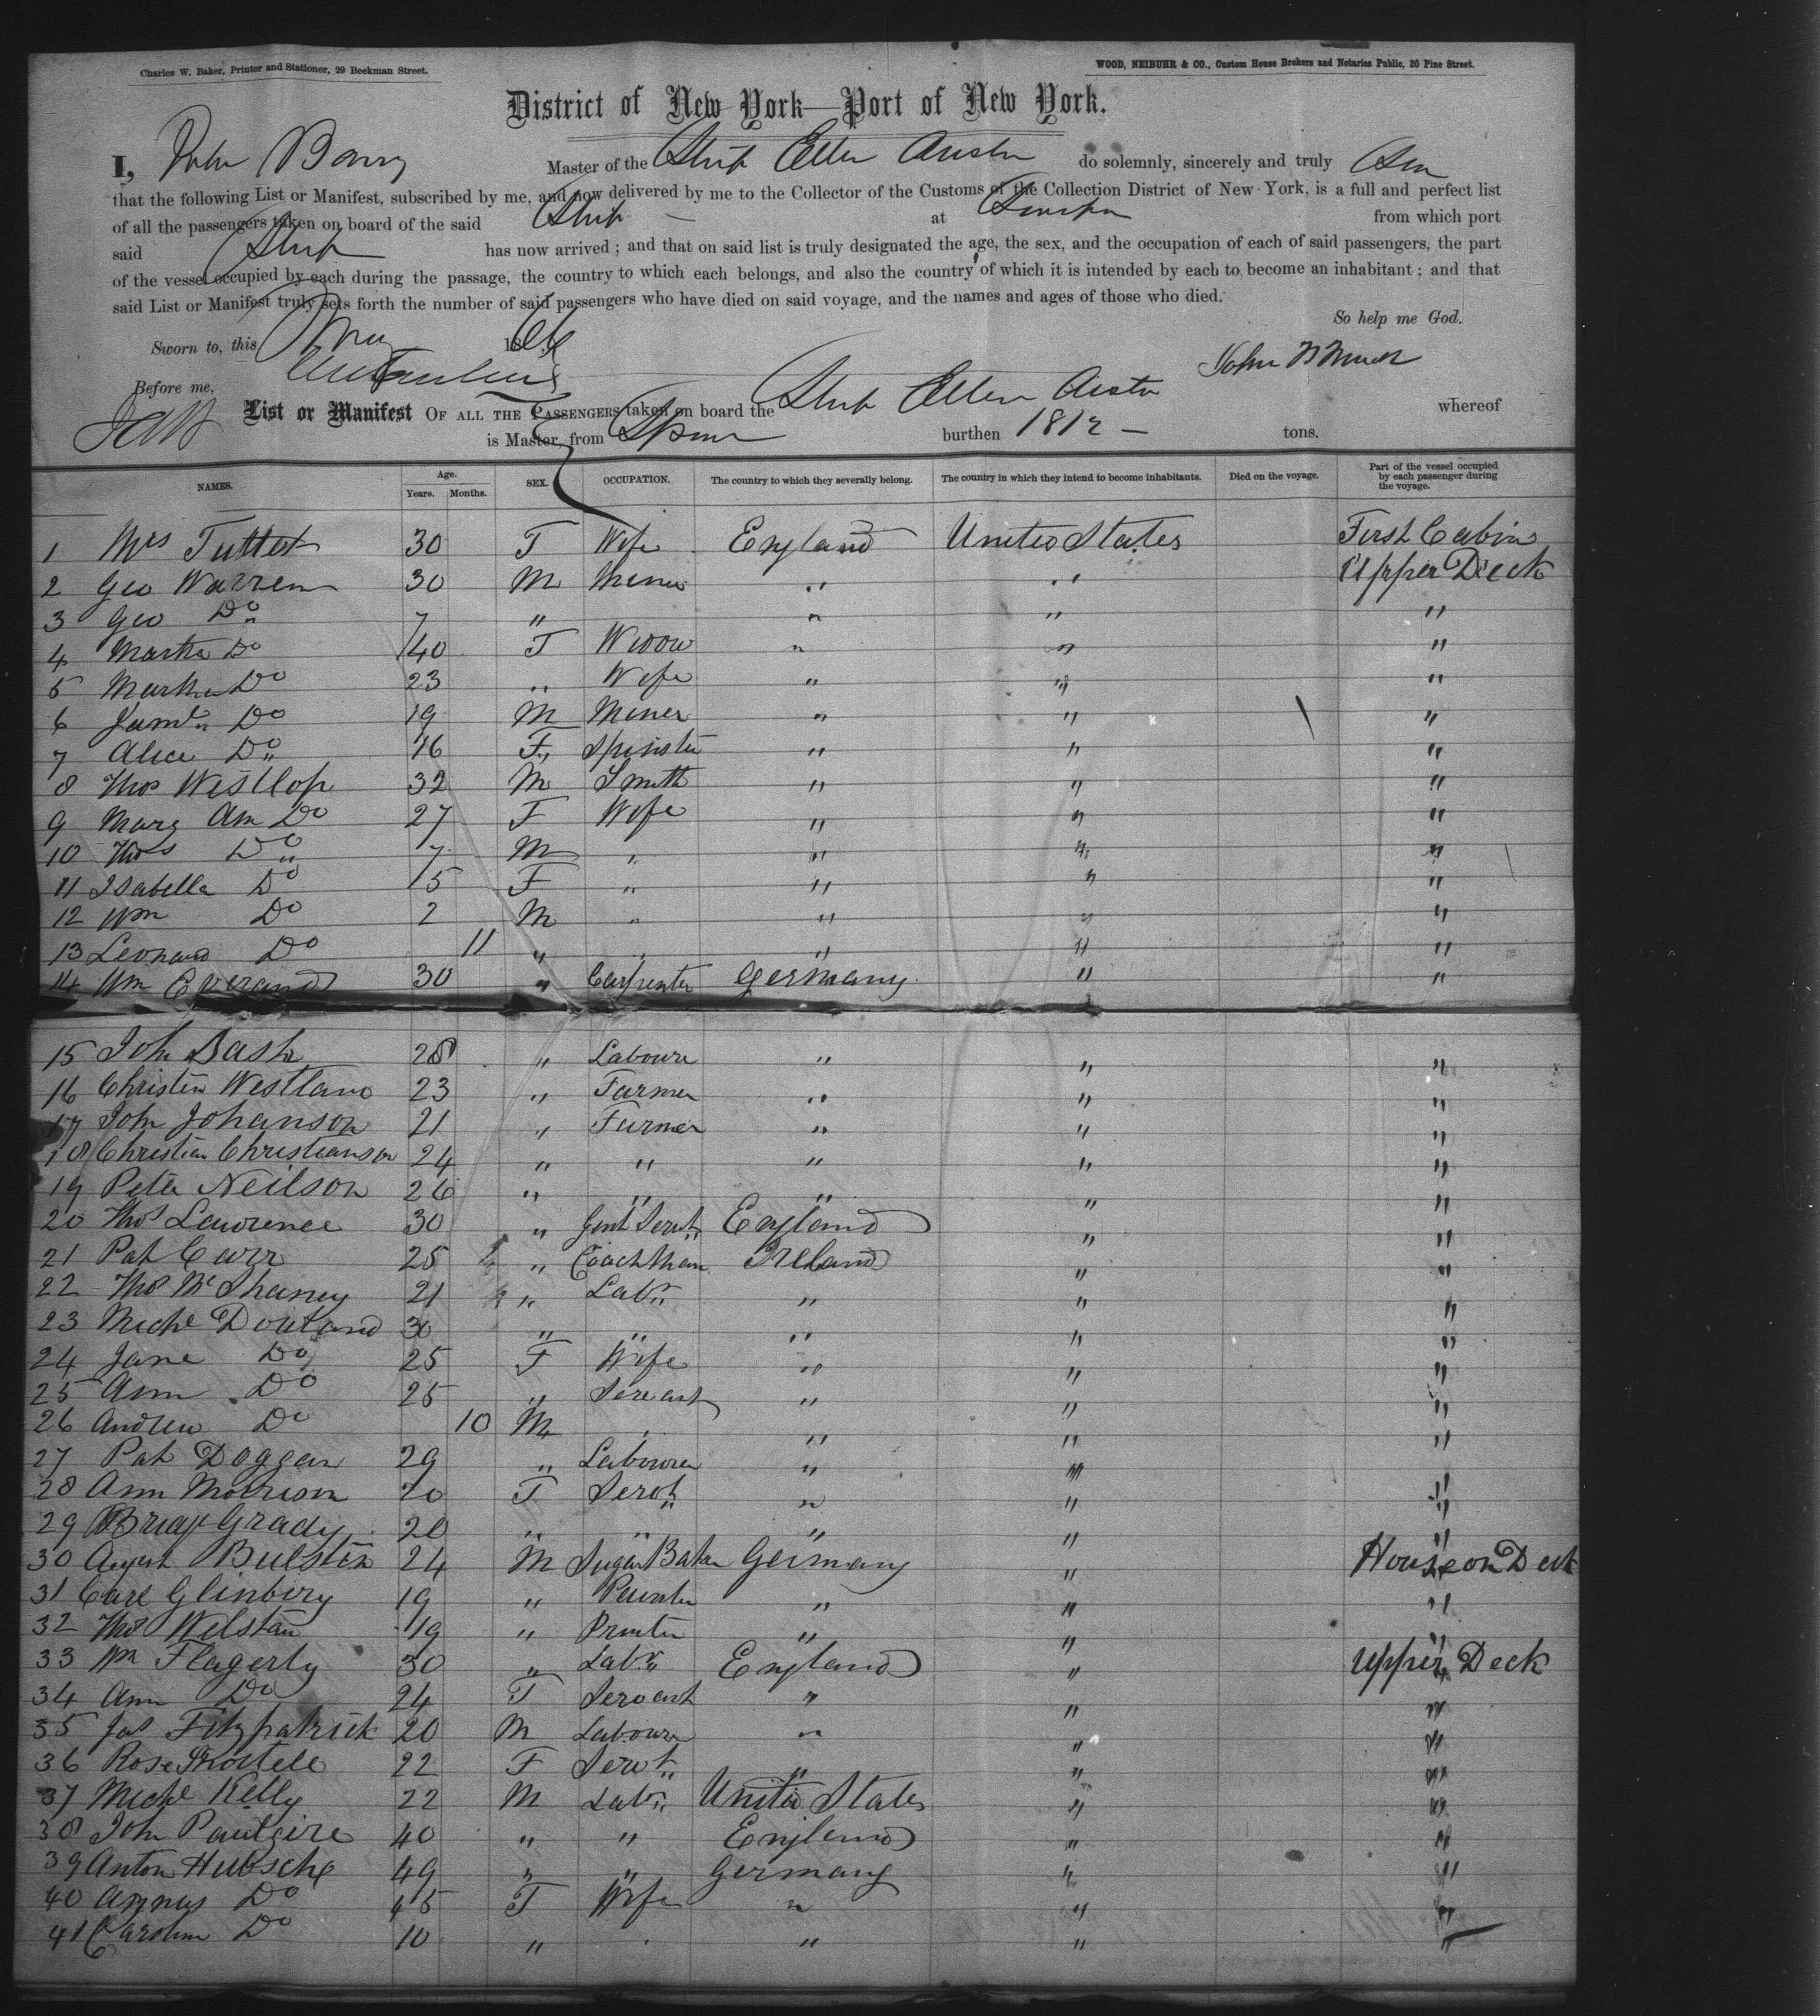 Charles W. Baker, Printer and Stationer, 29 Beekman Street.
WOOD, NEIBUHR & CO., Custom House Brokers and Notaries Public, 20 Pine Street.
District of New York—Port of New York.
I, John Master of the Ship Ellen Austin do solemnly, sincerely and truly
that the following List or Manifest, subscribed by me, and now delivered by me to the Collector of the Customs of the Collection District of New York, is a full and perfect list
of all the passengers taken on board of the said Ship — at from which port
said Ship has now arrived; and that on said list is truly designated the age, the sex, and the occupation of each of said passengers, the part
of the vessel occupied by each during the passage, the country to which each belongs, and also the country of which it is intended by each to become an inhabitant; and that
said List or Manifest truly sets forth the number of said passengers who have died on said voyage, and the names and ages of those who died.
So help me God.
Sworn to, this May 1866
Before me, John
List or Manifest OF ALL THE PASSENGERS taken on board the Ship Ellen Austin whereof
is Master, from burthen 1812 — tons.
NAMES. Age. Years. Months. SEX. OCCUPATION. The country to which they severally belong. The country in which they intend to become inhabitants. Died on the voyage. Part of the vessel occupied by each passenger during the voyage.
1 Mrs Tuttet 30 F Wife England United States First Cabin
2 Geo Warren 30 M Miner " " Upper Deck
3 Geo Do 7 " " " "
4 Martha Do 40 F Widow " " "
5 Martha Do 23 " Wife " " "
6 Saml Do 19 M Miner " " "
7 Alice Do 16 F Spinster " " "
8 Thos Westlop 32 M Smith " " "
9 Mary Ann Do 27 F Wife " " "
10 Thos Do 7 M " " " "
11 Isabella Do 5 F " " " "
12 Wm Do 2 M " " " "
13 Leonard Do 11 " " " " "
14 Wm Everand 30 " Carpenter Germany " "
15 John Dash 28 " Laboure " " "
16 Christen Westland 23 " Farmer " " "
17 John Johanson 21 " Farmer " " "
18 Christian Christianson 24 " " " " "
19 Peter Neilson 26 " " " " "
20 Thos Lawrence 30 " Gent Servt England " "
21 Pat Carr 25 " Coachman Ireland " "
22 Thos McShaney 21 " Labr " " "
23 Michl Douland 30 " " " " "
24 Jane Do 25 F Wife " " "
25 Ann Do 25 " Servant " " "
26 Andrew Do 10 M " " " "
27 Pat Doggan 29 " Labourer " " "
28 Ann Morrison 20 F Servt " " "
29 Grady 20 " " " " "
30 August Bulsten 24 M Sugar Baker Germany " House on Deck
31 Carl Glinbery 19 " " " "
32 Thos Welstan 19 " Printer " " "
33 Wm Flagerty 30 " Labr England " Upper Deck
34 Ann Do 24 F Servant " " "
35 Jas Fitzpatrick 20 M Laboure " " "
36 Rose 22 F Servt " " "
37 Michl Kelly 22 M Labr United States " "
38 John 40 " " England " "
39 Anton Hubsche 49 " " Germany " "
40 Do 45 F Wife " " "
41 Carolin Do 10 " " " "